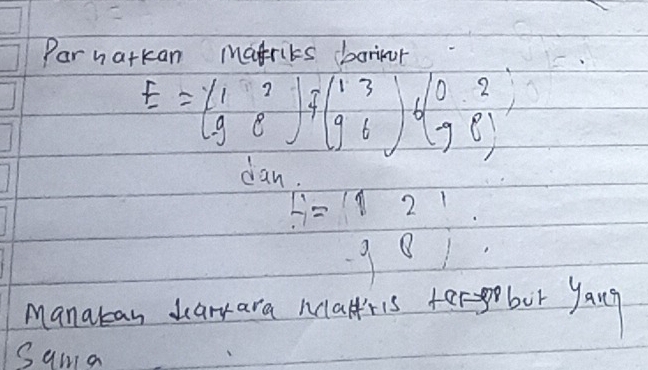 Parhatkan Matriks barikut
E = (1 2 F (1 3 G (0 2
(9 8 ) (9 6 ) (-9 8)
dan.
H = (1 2
-9 8 )
Manakah diantara Matris tersebut yang
Sama